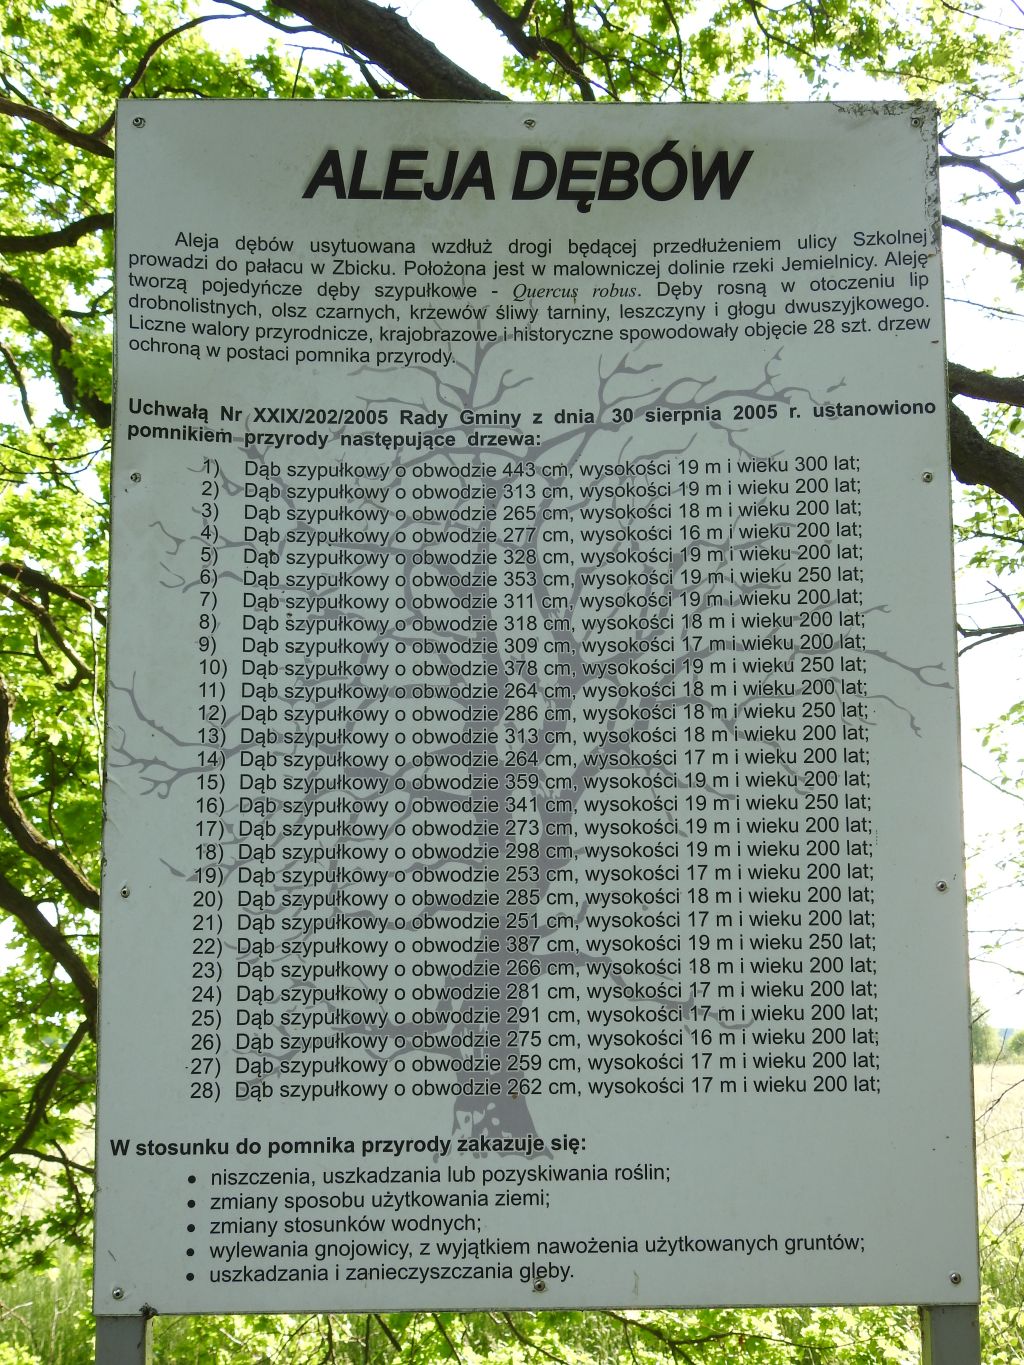 ALEJA DĘBÓW
Aleja dębów usytuowana wzdłuż drogi będącej przedłużeniem ulicy Szkolnej
prowadzi do pałacu w Zbicku. Położona jest w malowniczej dolinie rzeki Jemielnicy. Aleję
tworzą pojedyńcze dęby szypułkowe - Quercus robus. Dęby rosną w otoczeniu lip
drobnolistnych, olsz czarnych, krzewów śliwy tarniny, leszczyny i głogu dwuszyjkowego.
Liczne walory przyrodnicze, krajobrazowe i historyczne spowodowały objęcie 28 szt. drzew
ochroną w postaci pomnika przyrody.
Uchwałą Nr XXIX/202/2005 Rady Gminy z dnia 30 sierpnia 2005 r. ustanowiono
pomnikiem przyrody następujące drzewa:
1) Dąb szypułkowy o obwodzie 443 cm, wysokości 19 m i wieku 300 lat;
2) Dąb szypułkowy o obwodzie 313 cm, wysokości 19 m i wieku 200 lat;
3) Dąb szypułkowy o obwodzie 265 cm, wysokości 18 m i wieku 200 lat;
4) Dąb szypułkowy o obwodzie 277 cm, wysokości 16 m i wieku 200 lat;
5) Dąb szypułkowy o obwodzie 328 cm, wysokości 19 m i wieku 200 lat;
6) Dąb szypułkowy o obwodzie 353 cm, wysokości 19 m i wieku 250 lat;
7) Dąb szypułkowy o obwodzie 311 cm, wysokości 19 m i wieku 200 lat;
8) Dąb szypułkowy o obwodzie 318 cm, wysokości 18 m i wieku 200 lat;
9) Dąb szypułkowy o obwodzie 309 cm, wysokości 17 m i wieku 200 lat;
10) Dąb szypułkowy o obwodzie 378 cm, wysokości 19 m i wieku 250 lat;
11) Dąb szypułkowy o obwodzie 264 cm, wysokości 18 m i wieku 200 lat;
12) Dąb szypułkowy o obwodzie 286 cm, wysokości 18 m i wieku 250 lat;
13) Dąb szypułkowy o obwodzie 313 cm, wysokości 18 m i wieku 200 lat;
14) Dąb szypułkowy o obwodzie 264 cm, wysokości 17 m i wieku 200 lat;
15) Dąb szypułkowy o obwodzie 359 cm, wysokości 19 m i wieku 200 lat;
16) Dąb szypułkowy o obwodzie 341 cm, wysokości 19 m i wieku 250 lat;
17) Dąb szypułkowy o obwodzie 273 cm, wysokości 19 m i wieku 200 lat;
18) Dąb szypułkowy o obwodzie 298 cm, wysokości 19 m i wieku 200 lat;
19) Dąb szypułkowy o obwodzie 253 cm, wysokości 17 m i wieku 200 lat;
20) Dąb szypułkowy o obwodzie 285 cm, wysokości 18 m i wieku 200 lat;
21) Dąb szypułkowy o obwodzie 251 cm, wysokości 17 m i wieku 200 lat;
22) Dąb szypułkowy o obwodzie 387 cm, wysokości 19 m i wieku 250 lat;
23) Dąb szypułkowy o obwodzie 266 cm, wysokości 18 m i wieku 200 lat;
24) Dąb szypułkowy o obwodzie 281 cm, wysokości 17 m i wieku 200 lat;
25) Dąb szypułkowy o obwodzie 291 cm, wysokości 17 m i wieku 200 lat;
26) Dąb szypułkowy o obwodzie 275 cm, wysokości 16 m i wieku 200 lat;
27) Dąb szypułkowy o obwodzie 259 cm, wysokości 17 m i wieku 200 lat;
28) Dąb szypułkowy o obwodzie 262 cm, wysokości 17 m i wieku 200 lat;
W stosunku do pomnika przyrody zakazuje się:
• niszczenia, uszkadzania lub pozyskiwania roślin;
• zmiany sposobu użytkowania ziemi;
• zmiany stosunków wodnych;
• wylewania gnojowicy, z wyjątkiem nawożenia użytkowanych gruntów;
• uszkadzania i zanieczyszczania gleby.